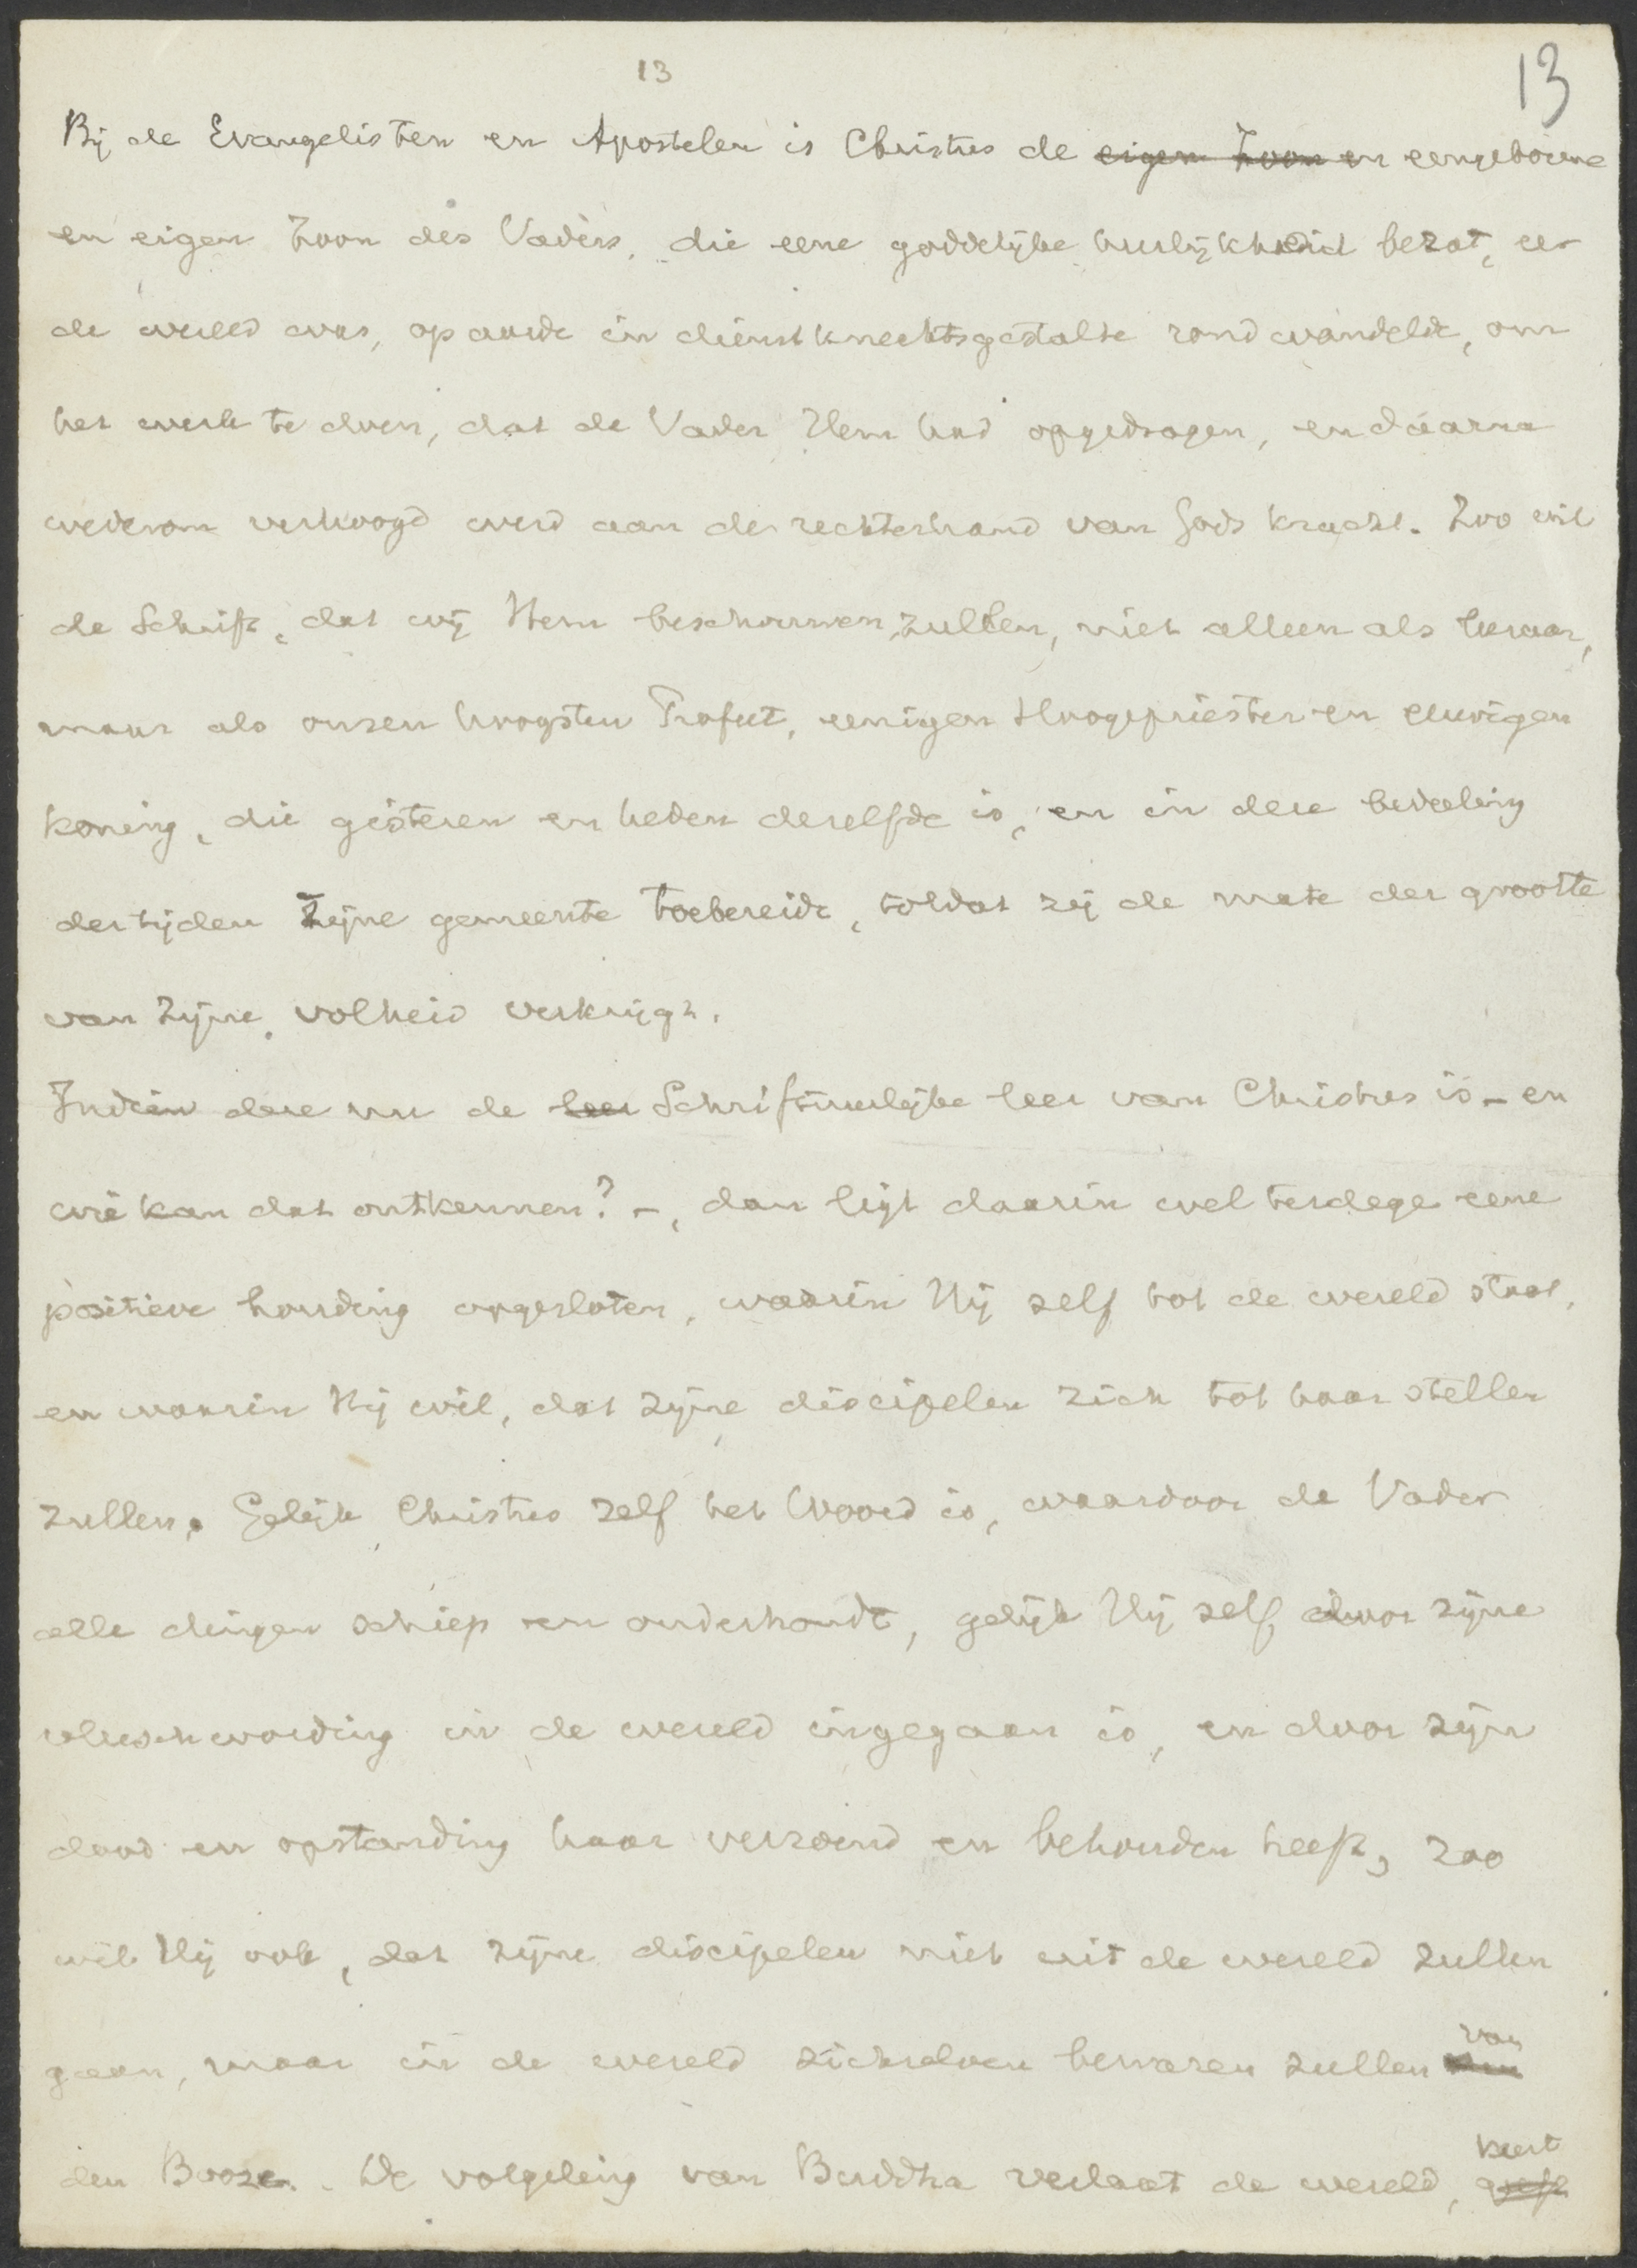 13
13
Bij de Evangelisten en Apostelen is Christus de eigen Zoon en eengeborene
en eigen Zoon des Vaders, die eene goddelijke heerlijkheid bezat, eer
de wereld was, op aarde in dienstknechtsgestalte rondwandelde, om
het werk te doen, dat de Vader Hem had opgedragen, en daarna
wederom verhoogd werd aan de rechterhand van Gods kracht. Zoo wil
de Schrift, dat wij Hem beschouwen zullen, niet alleen als leeraar,
maar als onzen hoogsten Profeet, eenigen Hoogepriester en eeuwigen
koning, die gisteren en heden dezelfde is, en in deze bedeeling
der tijden Zijne gemeente toebereidt, totdat zij de mate der grootte
van Zijne volheid verkrijgt.
Indien deze nu de leer Schriftuurlijke leer van Christus is - en
wie kan dat ontkennen? -, dan ligt daarin wel terdege eene
positieve houding opgesloten, waarin Hij zelf tot de wereld staat,
en waarin Hij wil, dat zijne discipelen zich tot haar stellen
zullen. Gelijk Christus zelf het Woord is, waardoor de Vader
alle dingen schiep en onderhoudt, gelijk Hij zelf door zijne
vleeschwording in de wereld ingegaan is, en door zijn
dood en opstanding haar verzoend en behouden heeft, zoo
wil Hij ook, dat zijne discipelen niet uit de wereld zullen
gaan, maar in de wereld zichzelven bewaren zullen van
den Booze. De volgeling van Buddha verlaat de wereld, keert